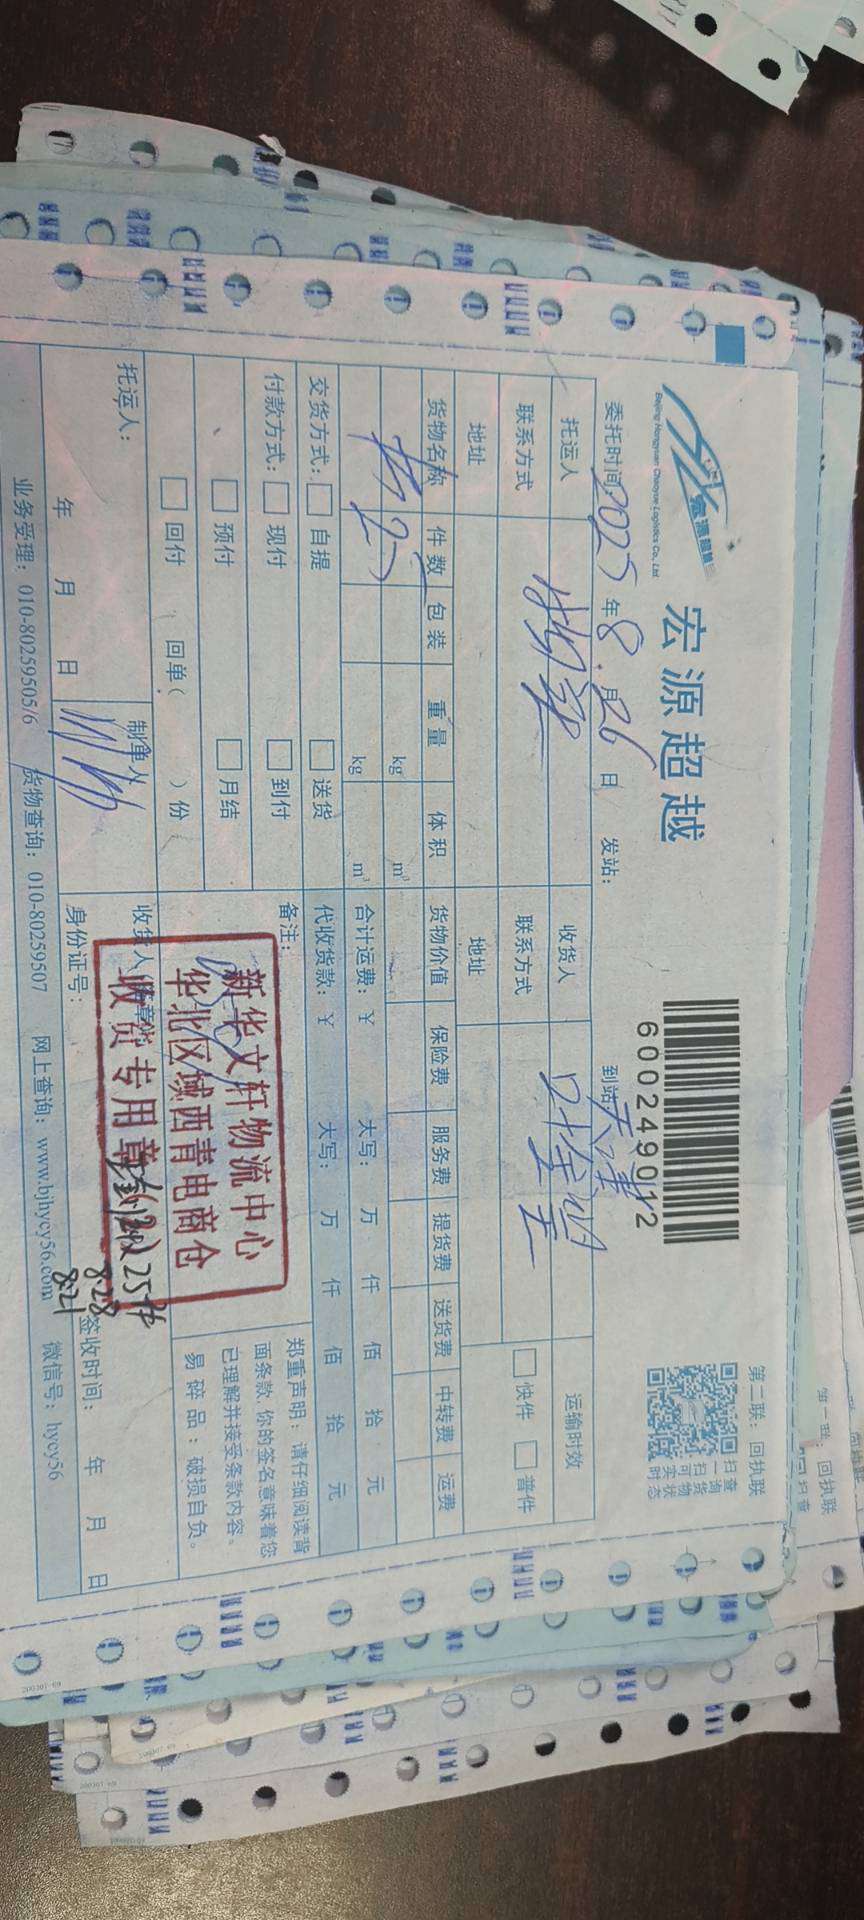 宏源超越
Beijing Hongyuan Chaoyue Logistics Co., Ltd
宏源超越
6000249012
第二联：回执联
扫一扫可实时
查询货物状态
委托时间 2025 年 8 月 26 日 发站： 到站 天津
托运人 收货人 运输时效
联系方式 联系方式 快件 普件
地址 地址
货物名称 件数 包装 重量 体积 货物价值 保险费 服务费 提货费 送货费 中转费 运费
书 25 kg m³
kg m³ 合计运费：￥ 大写： 万 仟 佰 拾 元
交货方式： 自提 送货 代收货款：￥ 大写： 万 仟 佰 拾 元
付款方式： 现付 到付 备注：
预付 月结
回付 回单（ ）份
郑重声明：请仔细阅读背
面条款，你的签名意味着您
已理解并接受条款内容。
易碎品：破损自负。
新华文轩物流中心
华北区域西青电商仓
收货专用章
托运人： 制单人 收货人
25件
8.28
8.21
年 月 日 身份证号： 签收时间： 年 月 日
业务受理：010-80259505/6 货物查询：010-80259507 网上查询：www.bjhycy56.com 微信号：hycy56
第一联：回执联
扫查